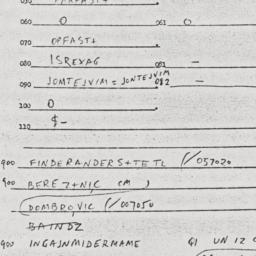 060 0 061 0
070 OPFAST+
080 ISREXAG 081 -
090 JOMTEJVIM = JONTEJVIM 092 -
100 0
110 $-
900 FINDERANDERS+TETL (/057020
900 BEREZ+NIC (M )
DOMBROVIC (/007050
BAINDZ
900 INGAJNMIDERNAME 61 UN IZ G